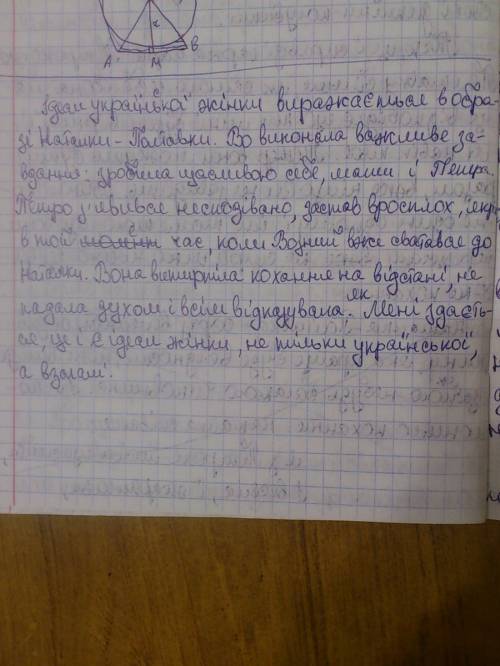 x
A M B
Ідеал української жінки виражається в обра-
зі Наталки-Полтавки. Во виконала важливе за-
вдання: зробила щасливою себе, мати і Петра.
Петро з'явився несподівано, застав врасплох, якраз
в той момент час, коли Возний вже сватався до
Наталки. Вона витерпіла кохання на відстані, не
падала духом і всім відказувала. Мені здаєть-
як
ся це і є ідеал жінки, не тільки української,
а взагалі.